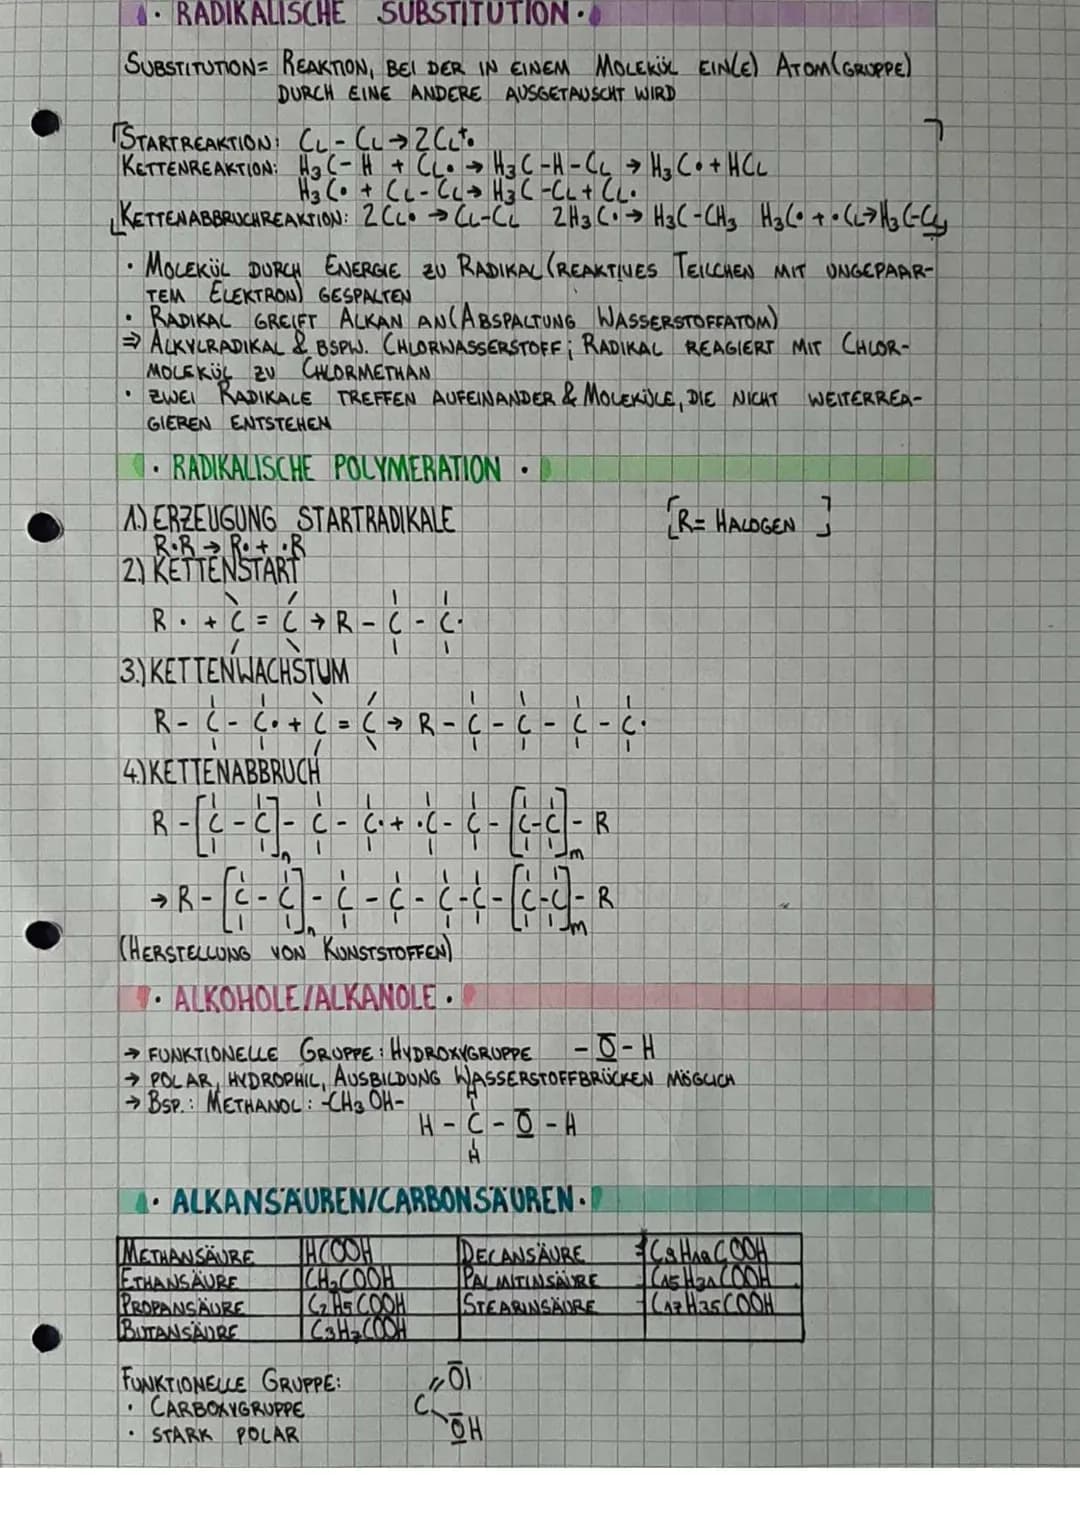 · RADIKALISCHE SUBSTITUTION ·
SUBSTITUTION= REAKTION, BEI DER IN EINEM MOLEKÜL EIN(E) ATOM(GRUPPE)
DURCH EINE ANDERE AUSGETAUSCHT WIRD
STARTREAKTION: CL - CL → 2CL•
KETTENREAKTION: H3C - H + CL• → H3C - H - CL → H3C• + HCL
H3C• + CL - CL → H3C - CL + CL•
KETTENABBRUCHREAKTION: 2CL• → CL-CL 2H3C• → H3C-CH3 H3C• + •CL → H3C-CL
• MOLEKÜL DURCH ENERGIE ZU RADIKAL (REAKTIVES TEILCHEN MIT UNGEPAAR-
TEM ELEKTRON) GESPALTEN
• RADIKAL GREIFT ALKAN AN (ABSPALTUNG WASSERSTOFFATOM)
⇒ ALKYLRADIKAL & BSPW. CHLORWASSERSTOFF; RADIKAL REAGIERT MIT CHLOR-
MOLEKÜL ZU CHLORMETHAN
• ZWEI RADIKALE TREFFEN AUFEINANDER & MOLEKÜLE, DIE NICHT WEITERREA-
GIEREN ENTSTEHEN
· RADIKALISCHE POLYMERATION ·
1.) ERZEUGUNG STARTRADIKALE [R= HALOGEN]
R•R → R• + •R
2.) KETTENSTART
R• + C = C → R - C - C•
3.) KETTENWACHSTUM
R - C - C• + C = C → R - C - C - C - C•
4.) KETTENABBRUCH
R - [C - C]n - C - C• + •C - C - [C-C]m - R
→ R - [C - C]n - C - C - C - C - [C-C]m - R
(HERSTELLUNG VON KUNSTSTOFFEN)
· ALKOHOLE/ALKANOLE ·
→ FUNKTIONELLE GRUPPE: HYDROXYGRUPPE - O - H
→ POLAR, HYDROPHIL, AUSBILDUNG WASSERSTOFFBRÜCKEN MÖGLICH
→ BSP.: METHANOL: -CH3 OH-
H
H - C - O - H
H
· ALKANSÄUREN/CARBONSÄUREN ·
METHANSÄURE HCOOH DECANSÄURE C9H19COOH
ETHANSÄURE CH3COOH PALMITINSÄURE C15H31COOH
PROPANSÄURE C2H5COOH STEARINSÄURE C17H35COOH
BUTANSÄURE C3H7COOH
FUNKTIONELLE GRUPPE: O
• CARBOXYGRUPPE C
• STARK POLAR OH